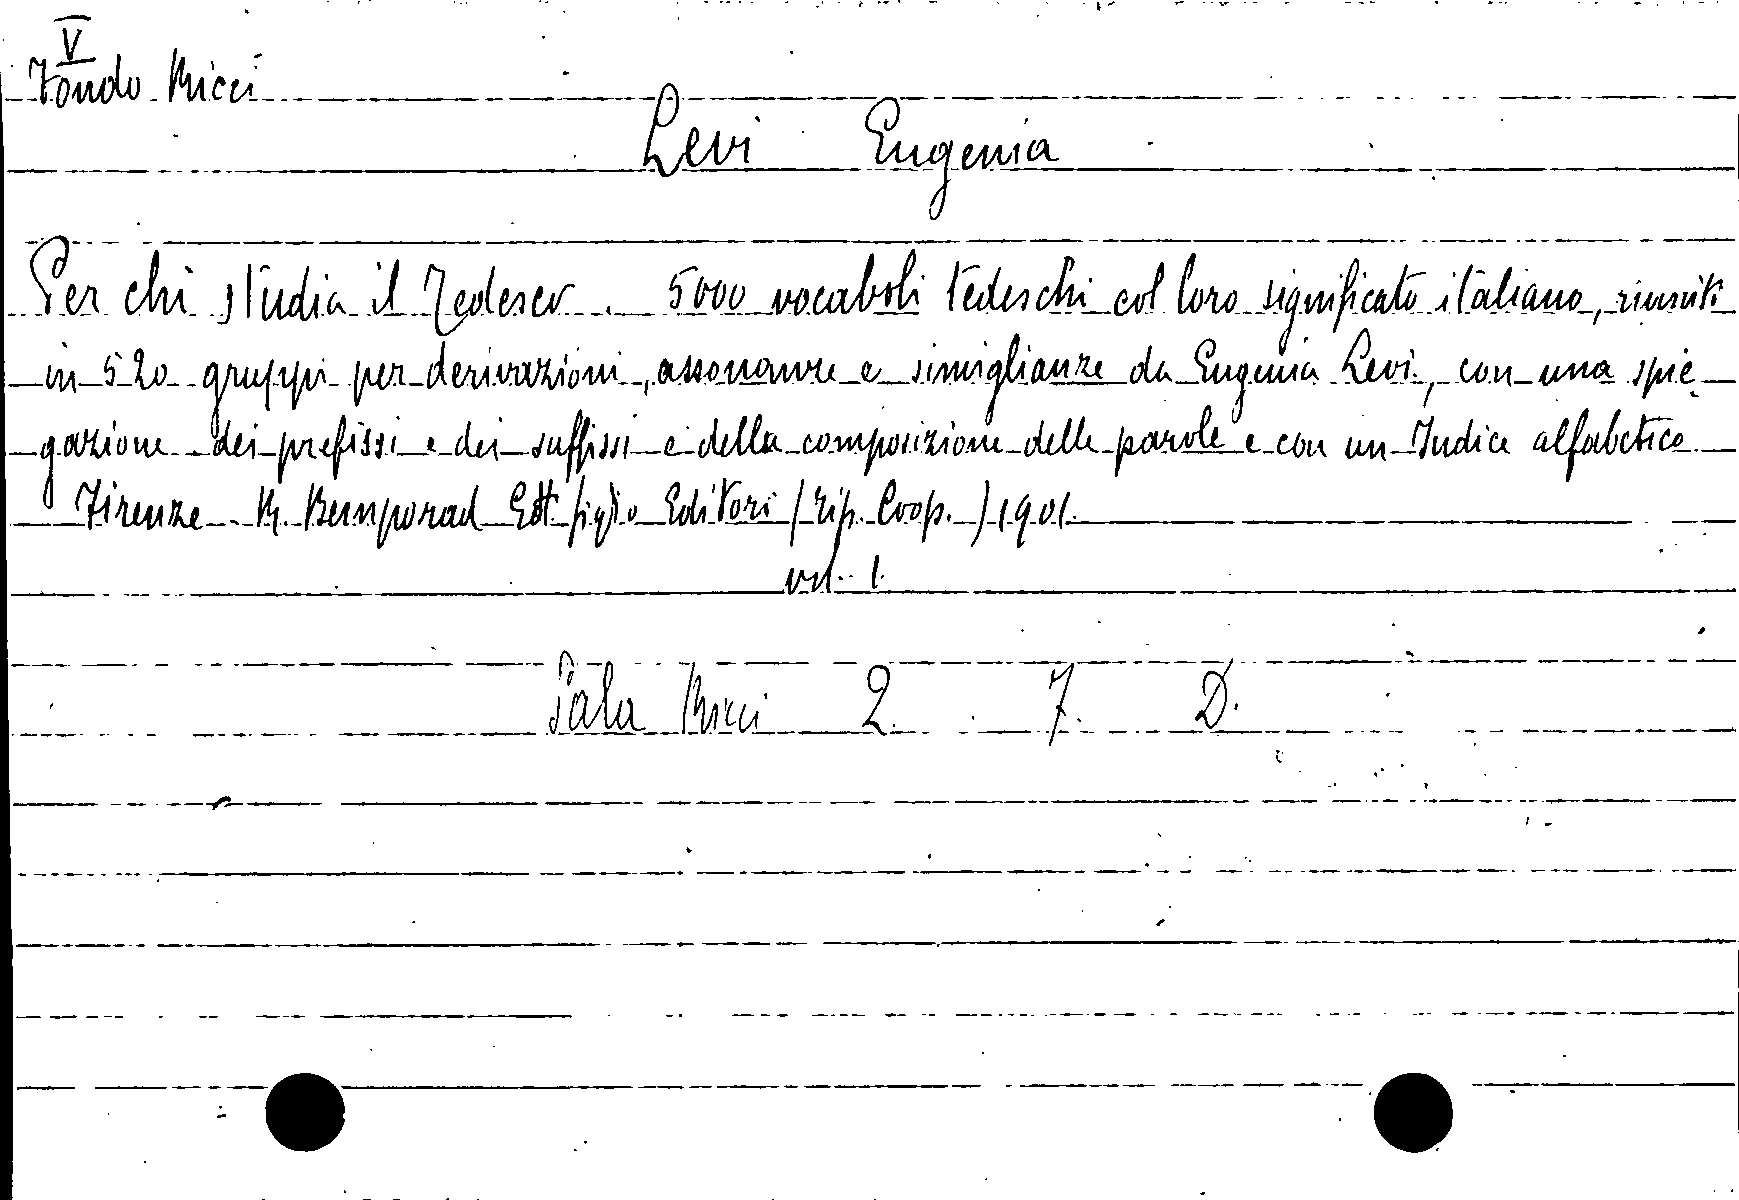 V
Fondo Ricci
Levi Eugenia
Per chi studia il Tedesco. 5000 vocaboli tedeschi col loro significato italiano, riuniti
in 520 gruppi per derivazioni, assonanze e simiglianze da Eugenia Levi, con una spie-
gazione dei prefissi e dei suffissi e della composizione delle parole e con un Indice alfabetico
Firenze. R. Bemporad Ett figlio Editori (Tip. Coop.) 1901.
vol. 1.
Sala Ricci 2. 7. D.